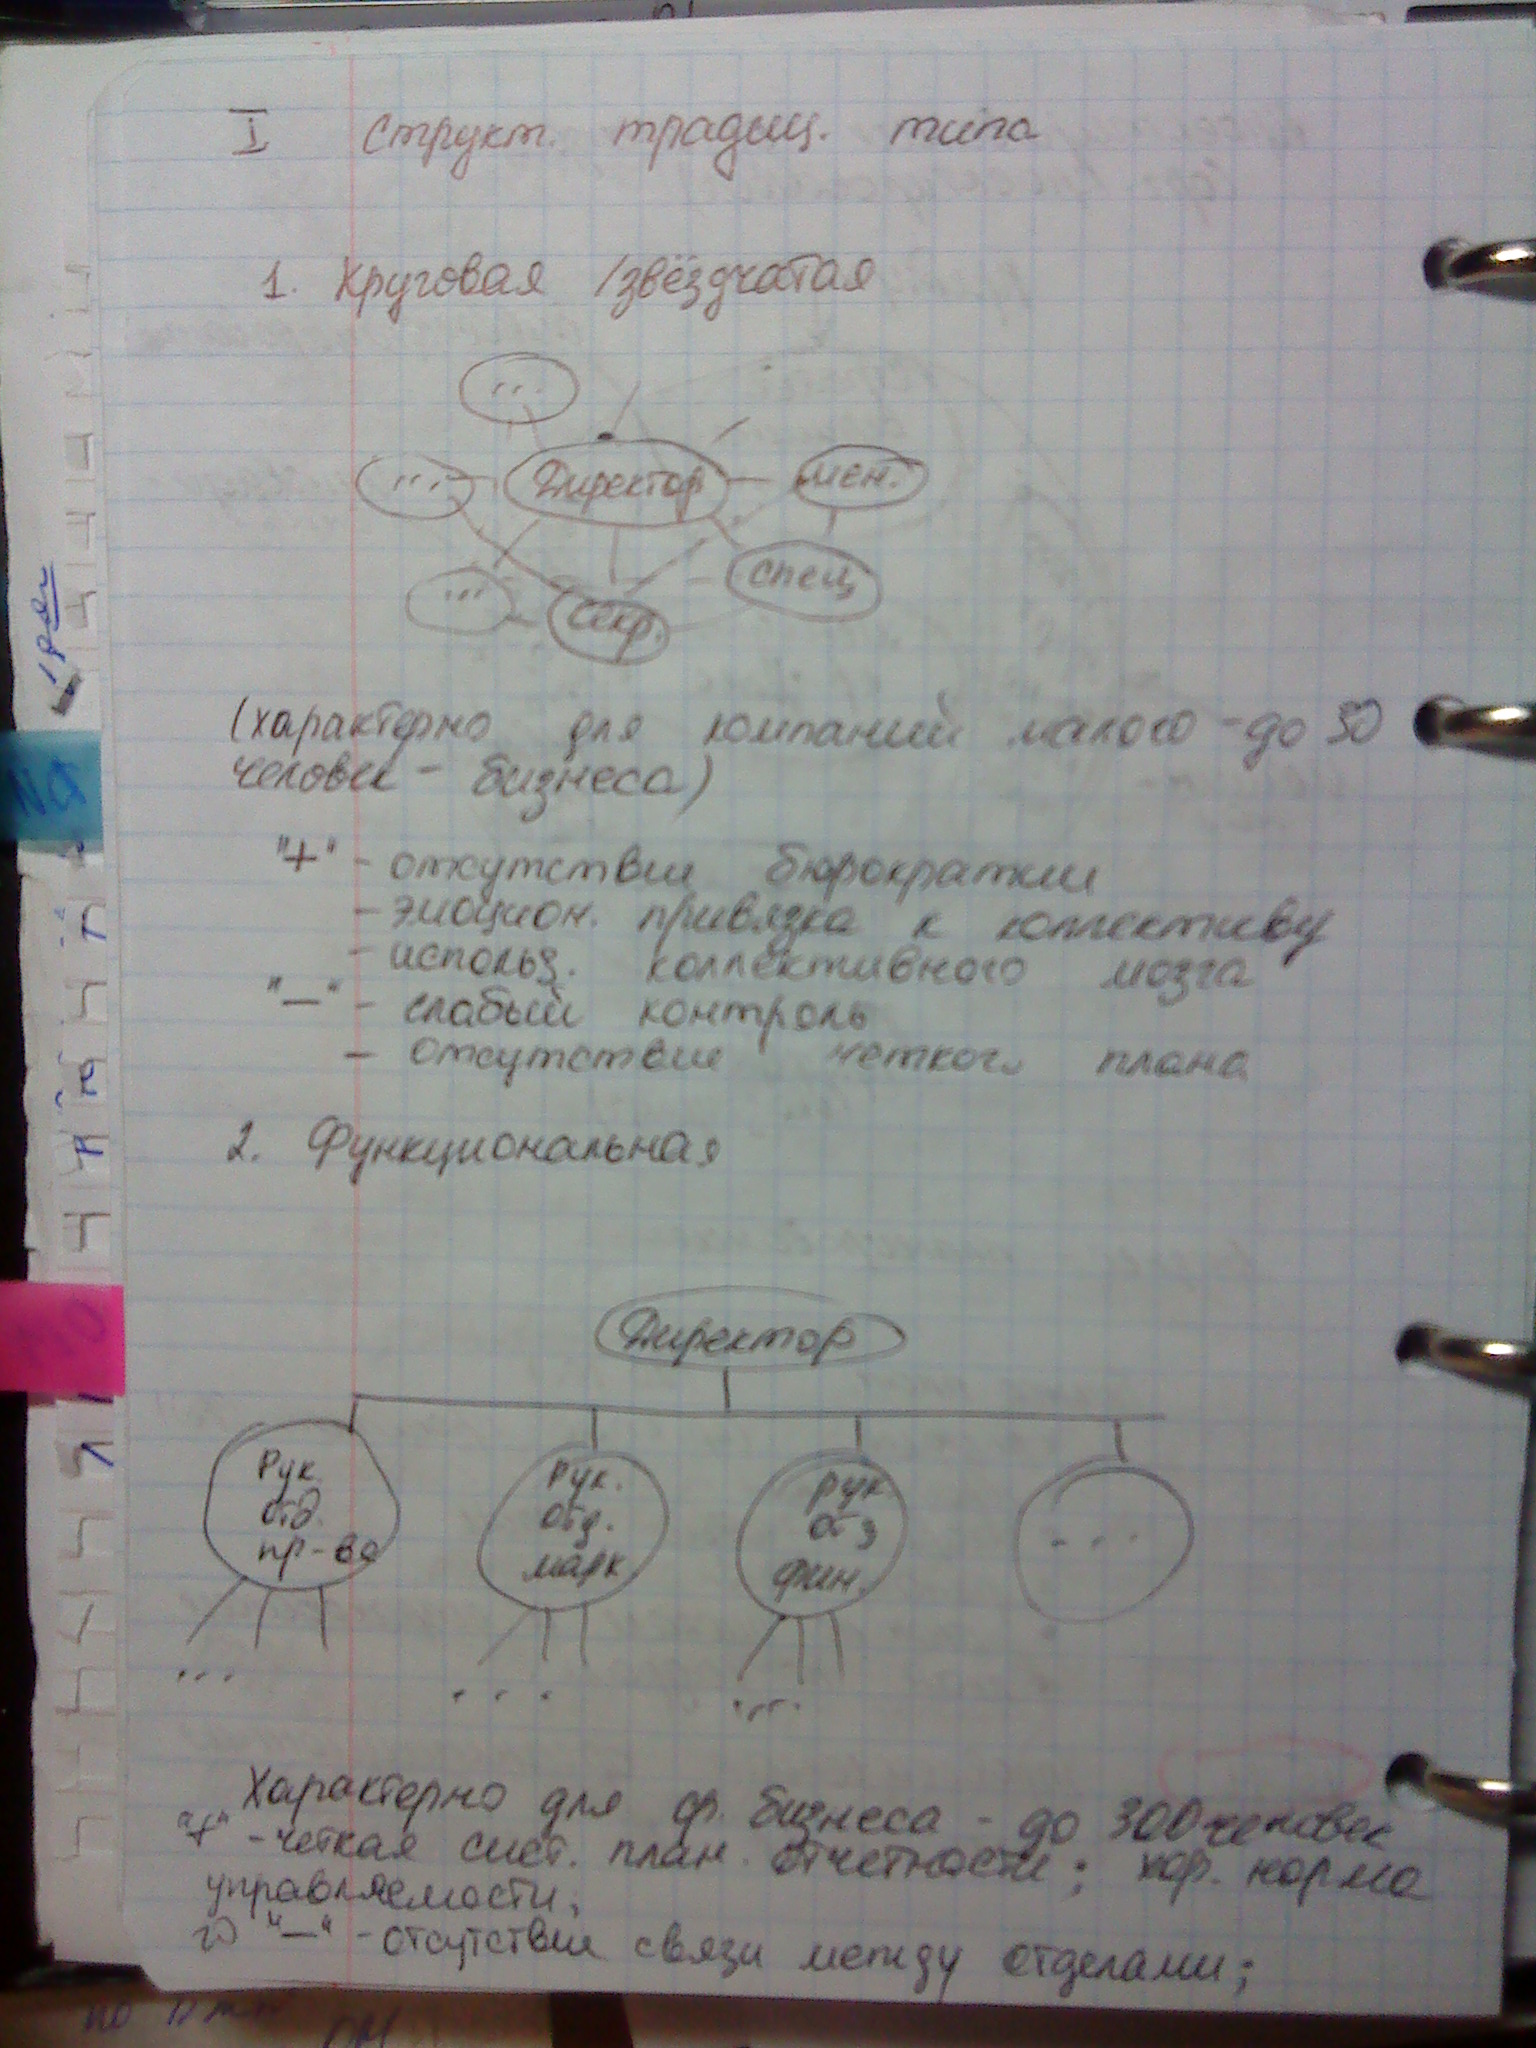 I Структ. традиц. типа
1. Круговая /звёздчатая
...
... Директор мен.
... секр. спец
(характерно для компаний малого - до 30
человек - бизнеса)
"+" - отсутствие бюрократии
- эмоцион. привязка к коллективу
- использ. коллективного мозга
"—" - слабый контроль
- отсутствие четкого плана
2. Функциональная
Директор
Рук. отд. пр-ва
Рук. отд. марк.
рук. отд фин.
...
... ... ...
Характерно для ср. бизнеса - до 300 человек
"+" - четкая сист. план. отчетности; хор. норма
управляемости;
"—" - отсутствие связи между отделами;